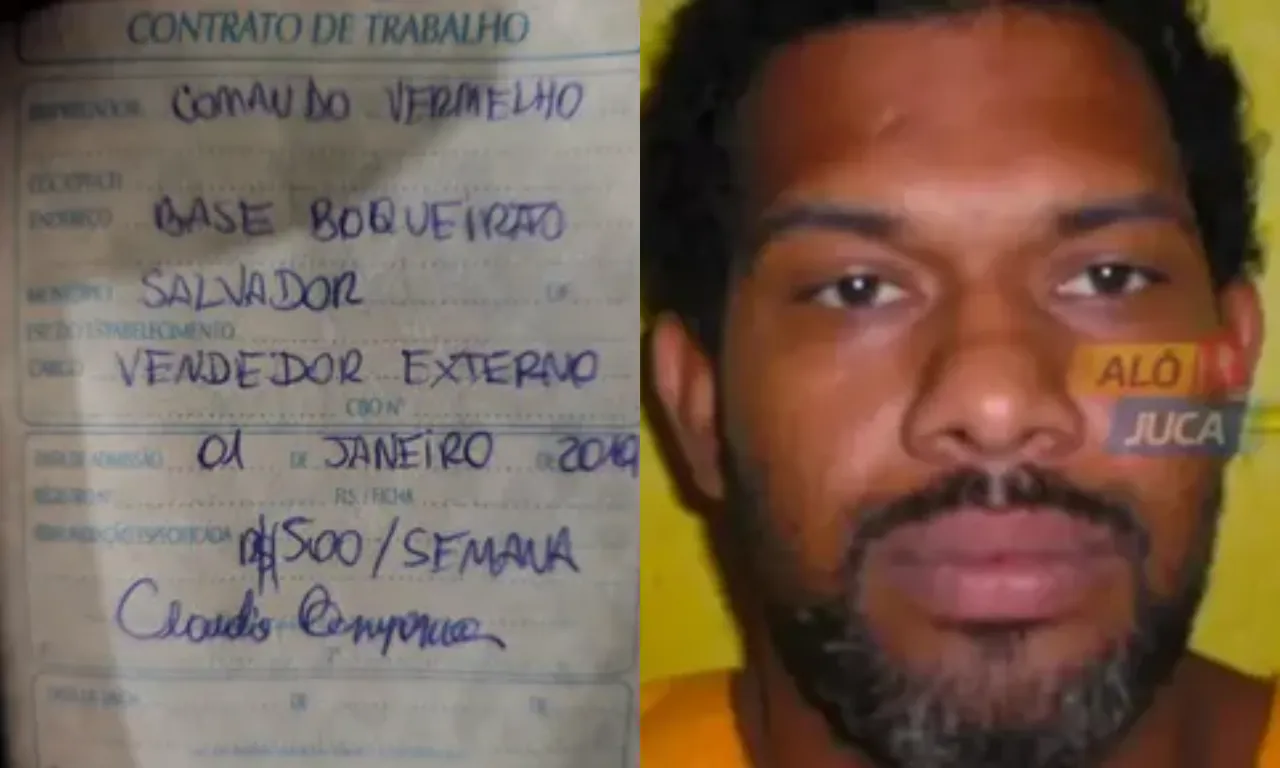 CONTRATO DE TRABALHO
EMPREGADOR COMANDO VERMELHO
CGC/CPF/CEI
ENDEREÇO BASE BOQUEIRÃO
MUNICÍPIO SALVADOR UF
ESP. DO ESTABELECIMENTO
CARGO VENDEDOR EXTERNO
CBO Nº
DATA DE ADMISSÃO 01 DE JANEIRO DE 2019
REGISTRO Nº FLS. / FICHA
REMUNERAÇÃO ESPECIFICADA R$ 500 / SEMANA
Claudio Campanha
DATA DE SAÍDA DE DE
ALÔ
JUCA